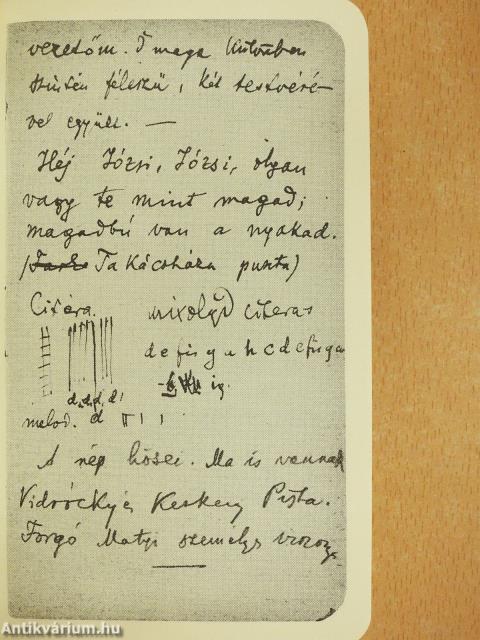 vezetőm. Ő maga különben
szintén féleszű, két testvéré-
vel együtt. —
Héj Józsi, Józsi, olyan
vagy te mint magad;
magadbú van a nyakad.
(Takácsháza puszta)
Citera. mixolyd citeras
d e fis g a h c d e fis g a
d, d, d, d'
ig.
melod. d
A nép hősei. Ma is vannak
Vidróczky és Keskeny Pista.
Forgó Matyi személyes viszony
Antikvárium.hu